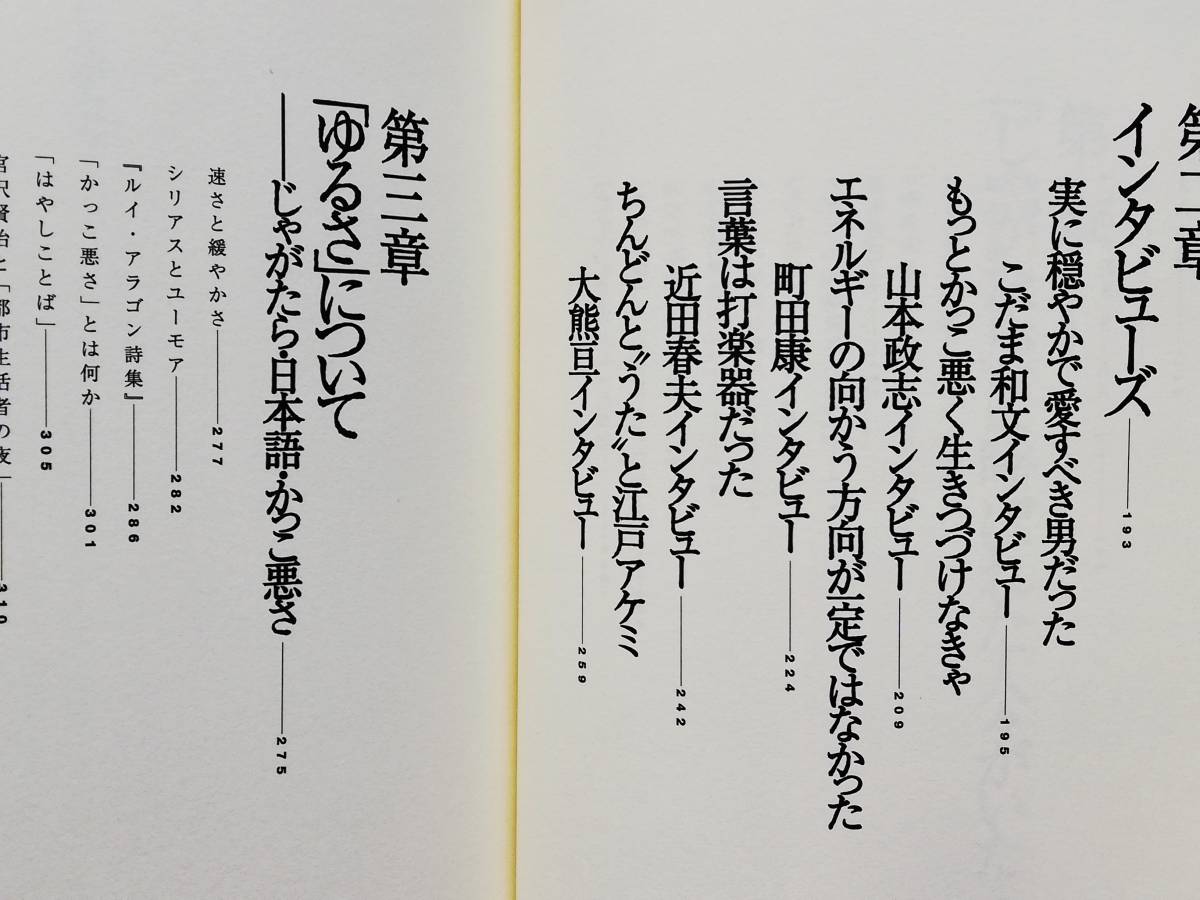 第二章
インタビューズ——193
実に穏やかで愛すべき男だった
こだま和文インタビュー——195
もっとかっこ悪く生きつづけなきゃ
山本政志インタビュー——209
エネルギーの向かう方向が一定ではなかった
町田康インタビュー——224
言葉は打楽器だった
近田春夫インタビュー——242
ちんどんと〝うた〟と江戸アケミ
大熊亘インタビュー——259
第三章
「ゆるさ」について
——じゃがたら・日本語・かっこ悪さ——275
速さと緩やかさ——277
シリアスとユーモア——282
『ルイ・アラゴン詩集』——286
「かっこ悪さ」とは何か——301
「はやしことば」——305
宮沢賢治と「都市生活者の夜」——310